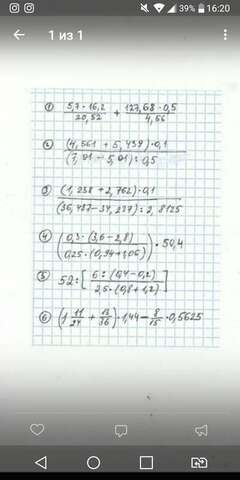 39% 16:20
1 из 1
① 5,7·16,2/20,52 + 127,68·0,5/4,56
② (4,561 + 5,439)·0,1/(7,01−5,01):0,5
③ (1,238+2,762)·0,1/(36,487−34,237):2,8125
④ (0,3·(3,6−2,8)/0,25·(0,94+1,06))·50,4
⑤ 52:[6:(0,4−0,2)/2,5·(0,8+1,2)]
⑥ (1 11/24 + 13/36)·1,44 − 8/15·0,5625